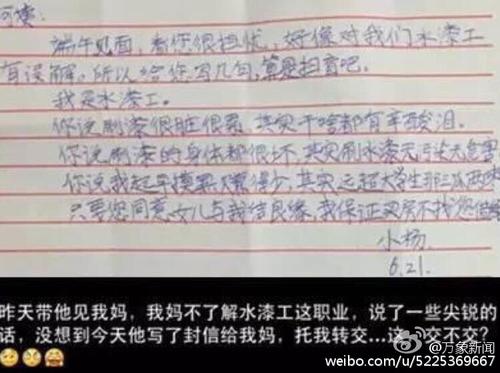 端午见面，看您很担忧，好像对我们水漆工
有误解，所以给您写几句，算是担言吧。
我是水漆工。
你说刷漆很脏很累，其实干啥都有辛酸泪。
你说刷漆的身体都很坏，其实刷水漆无污染无危害
你说我起早摸黑赚得少，其实远超大学生
只要您同意女儿与我结良缘，我保证买房不找您借
小杨
6.21.
昨天带他见我妈，我妈不了解水漆工这职业，说了一些尖锐的
话，没想到今天他写了封信给我妈，托我转交...这 交不交？
@万象新闻
weibo.com/u/5225369667